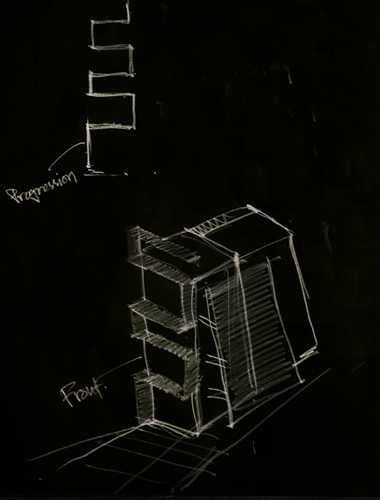 Progression
Front.